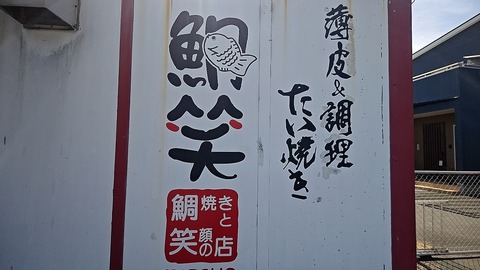 薄皮&調理
たい焼き
鯛笑
鯛焼きと
笑顔の店